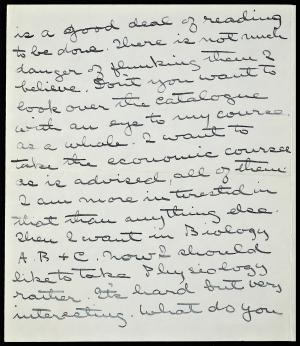 is a good deal of reading
to be done. There is not much
danger of flunking them I
believe. Don't you want to
look over the catalogue
with an eye to my course
as a whole. I want to
take the economic courses
as is advised, all of them.
I am more interested in
that than anything else.
Then I want in Biology
A. B + C. Now I should
like to take Physiology
rather. It's hard but very
interesting. What do you